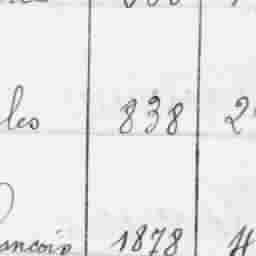 les 838 2
ancois 1878 4